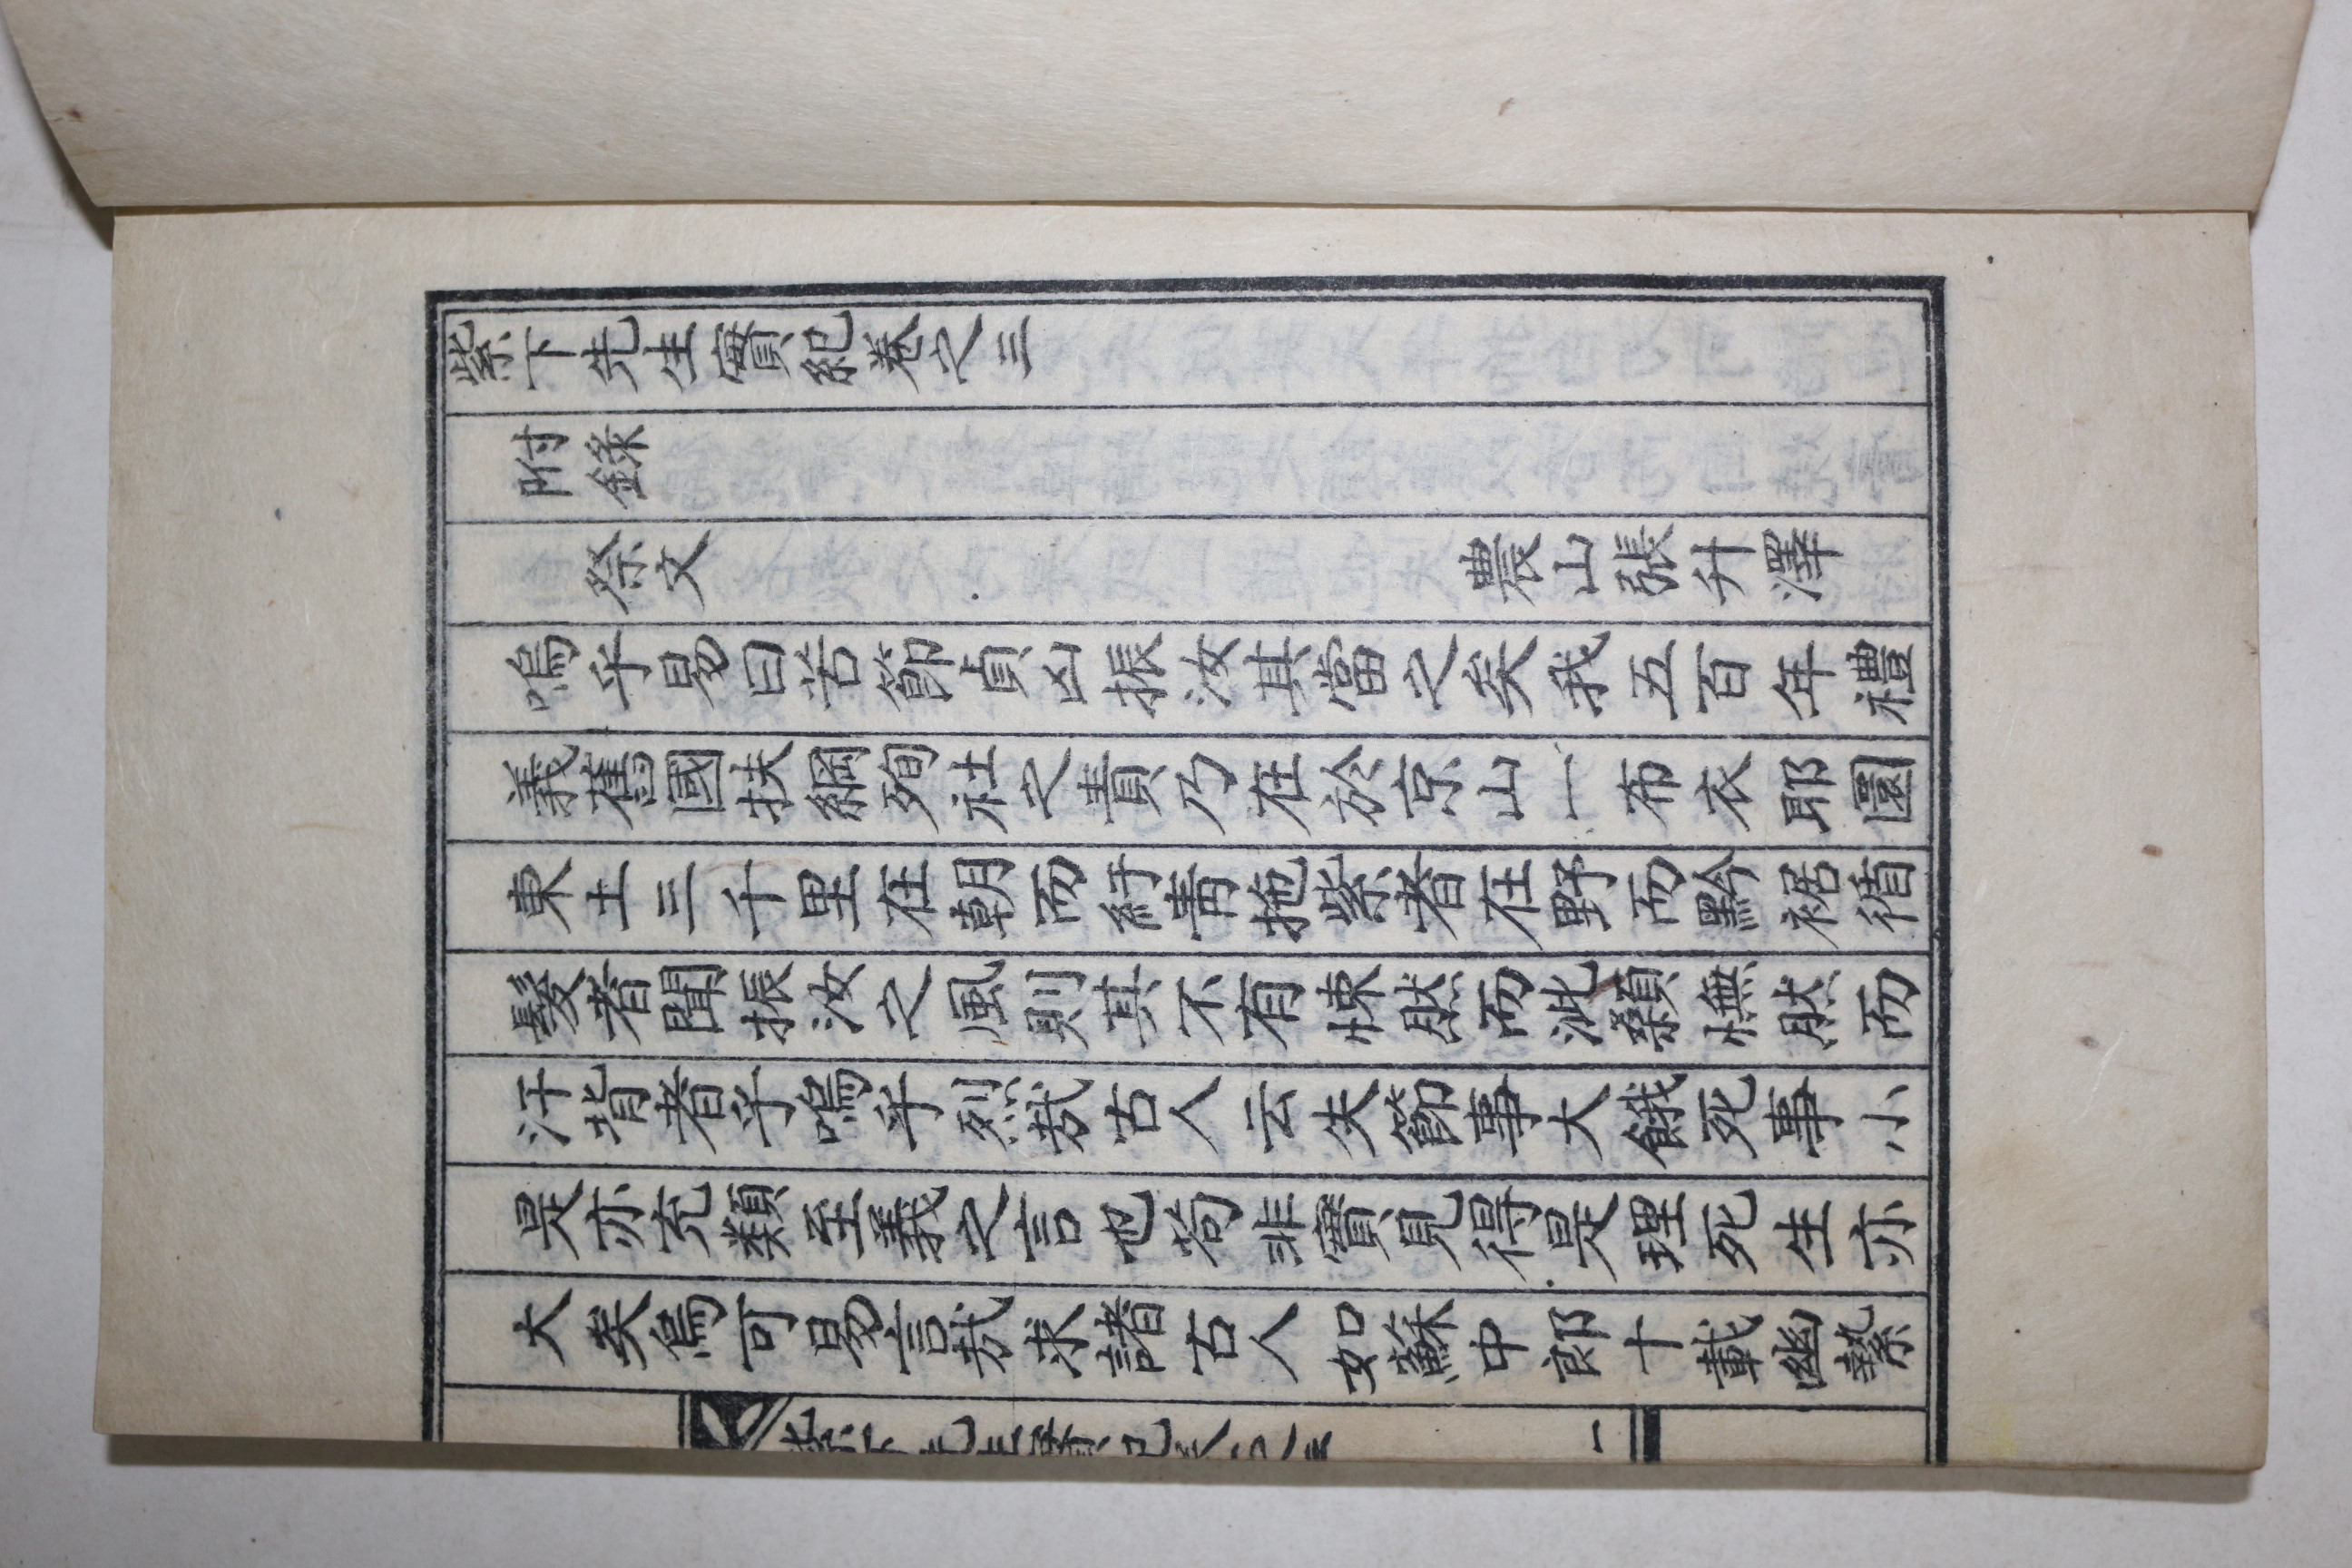 紫下先生實紀卷之三
附錄
祭文 農山張升澤
嗚乎易曰苦節貞凶振汝其當之矣我五百年禮
義舊國扶綱殉社之責乃在於京山一布衣耶圜
東土三千里在朝而紆靑拖紫者在野而黔裾循
髮者聞振汝之風則其不有悚然而泚顙憮然而
汗背者乎嗚乎烈哉古人云失節事大餓死事小
是亦充類至義之言也苟非實見得是理死生亦
大矣烏可易言哉求諸古人如蘇中郎十載幽縶
紫下先生實紀卷之三 一